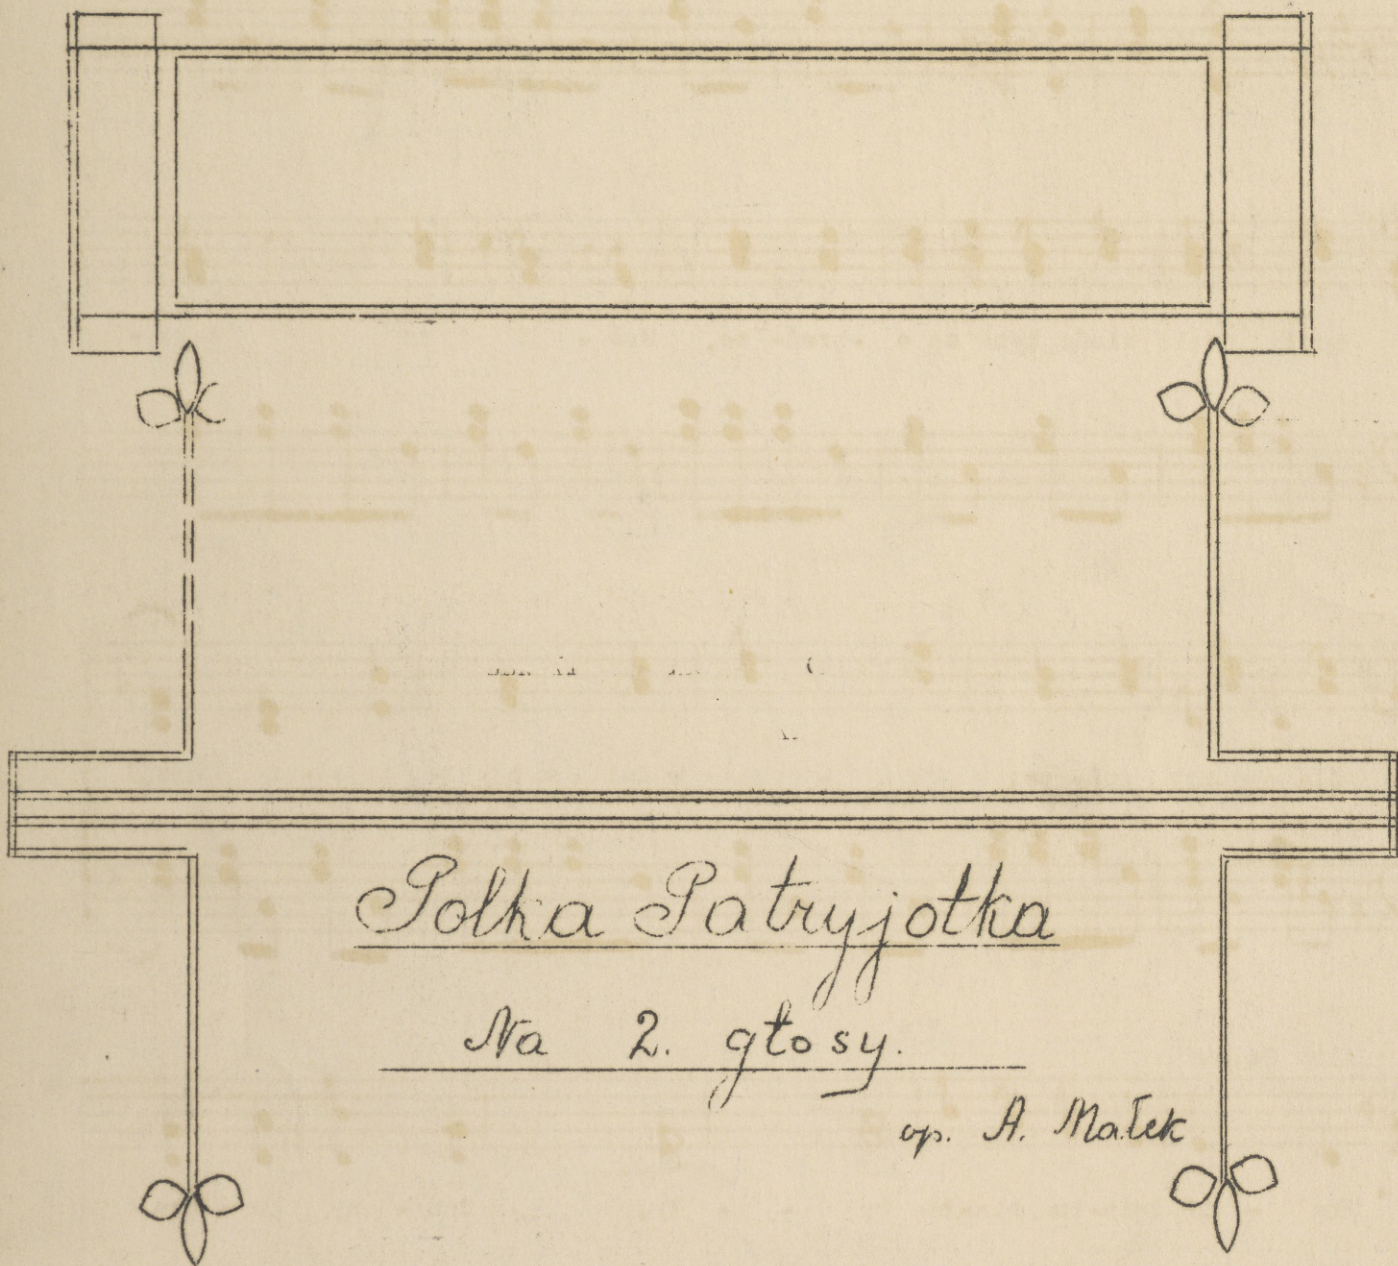 Polka Patryjotka
Na 2. głosy.
op. A. Małek